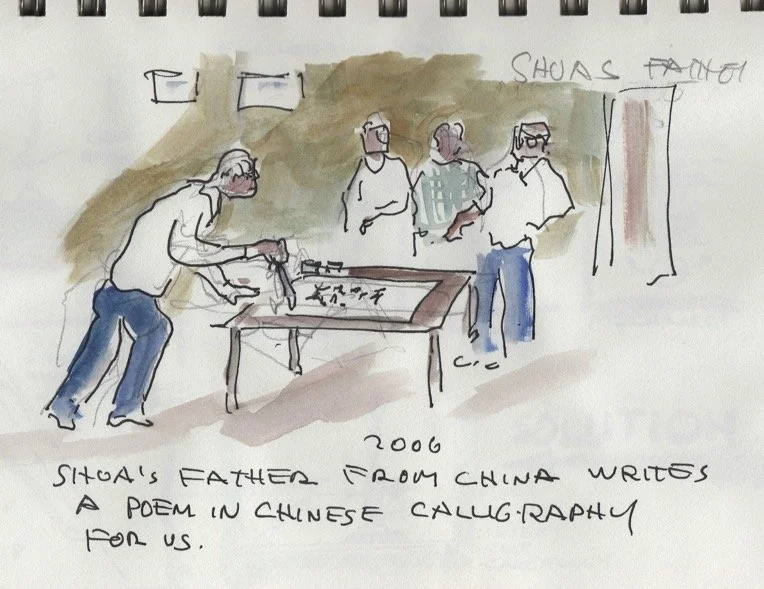 SHUAS FATHER
2006
SHUA'S FATHER FROM CHINA WRITES
A POEM IN CHINESE CALLIGRAPHY
FOR US.